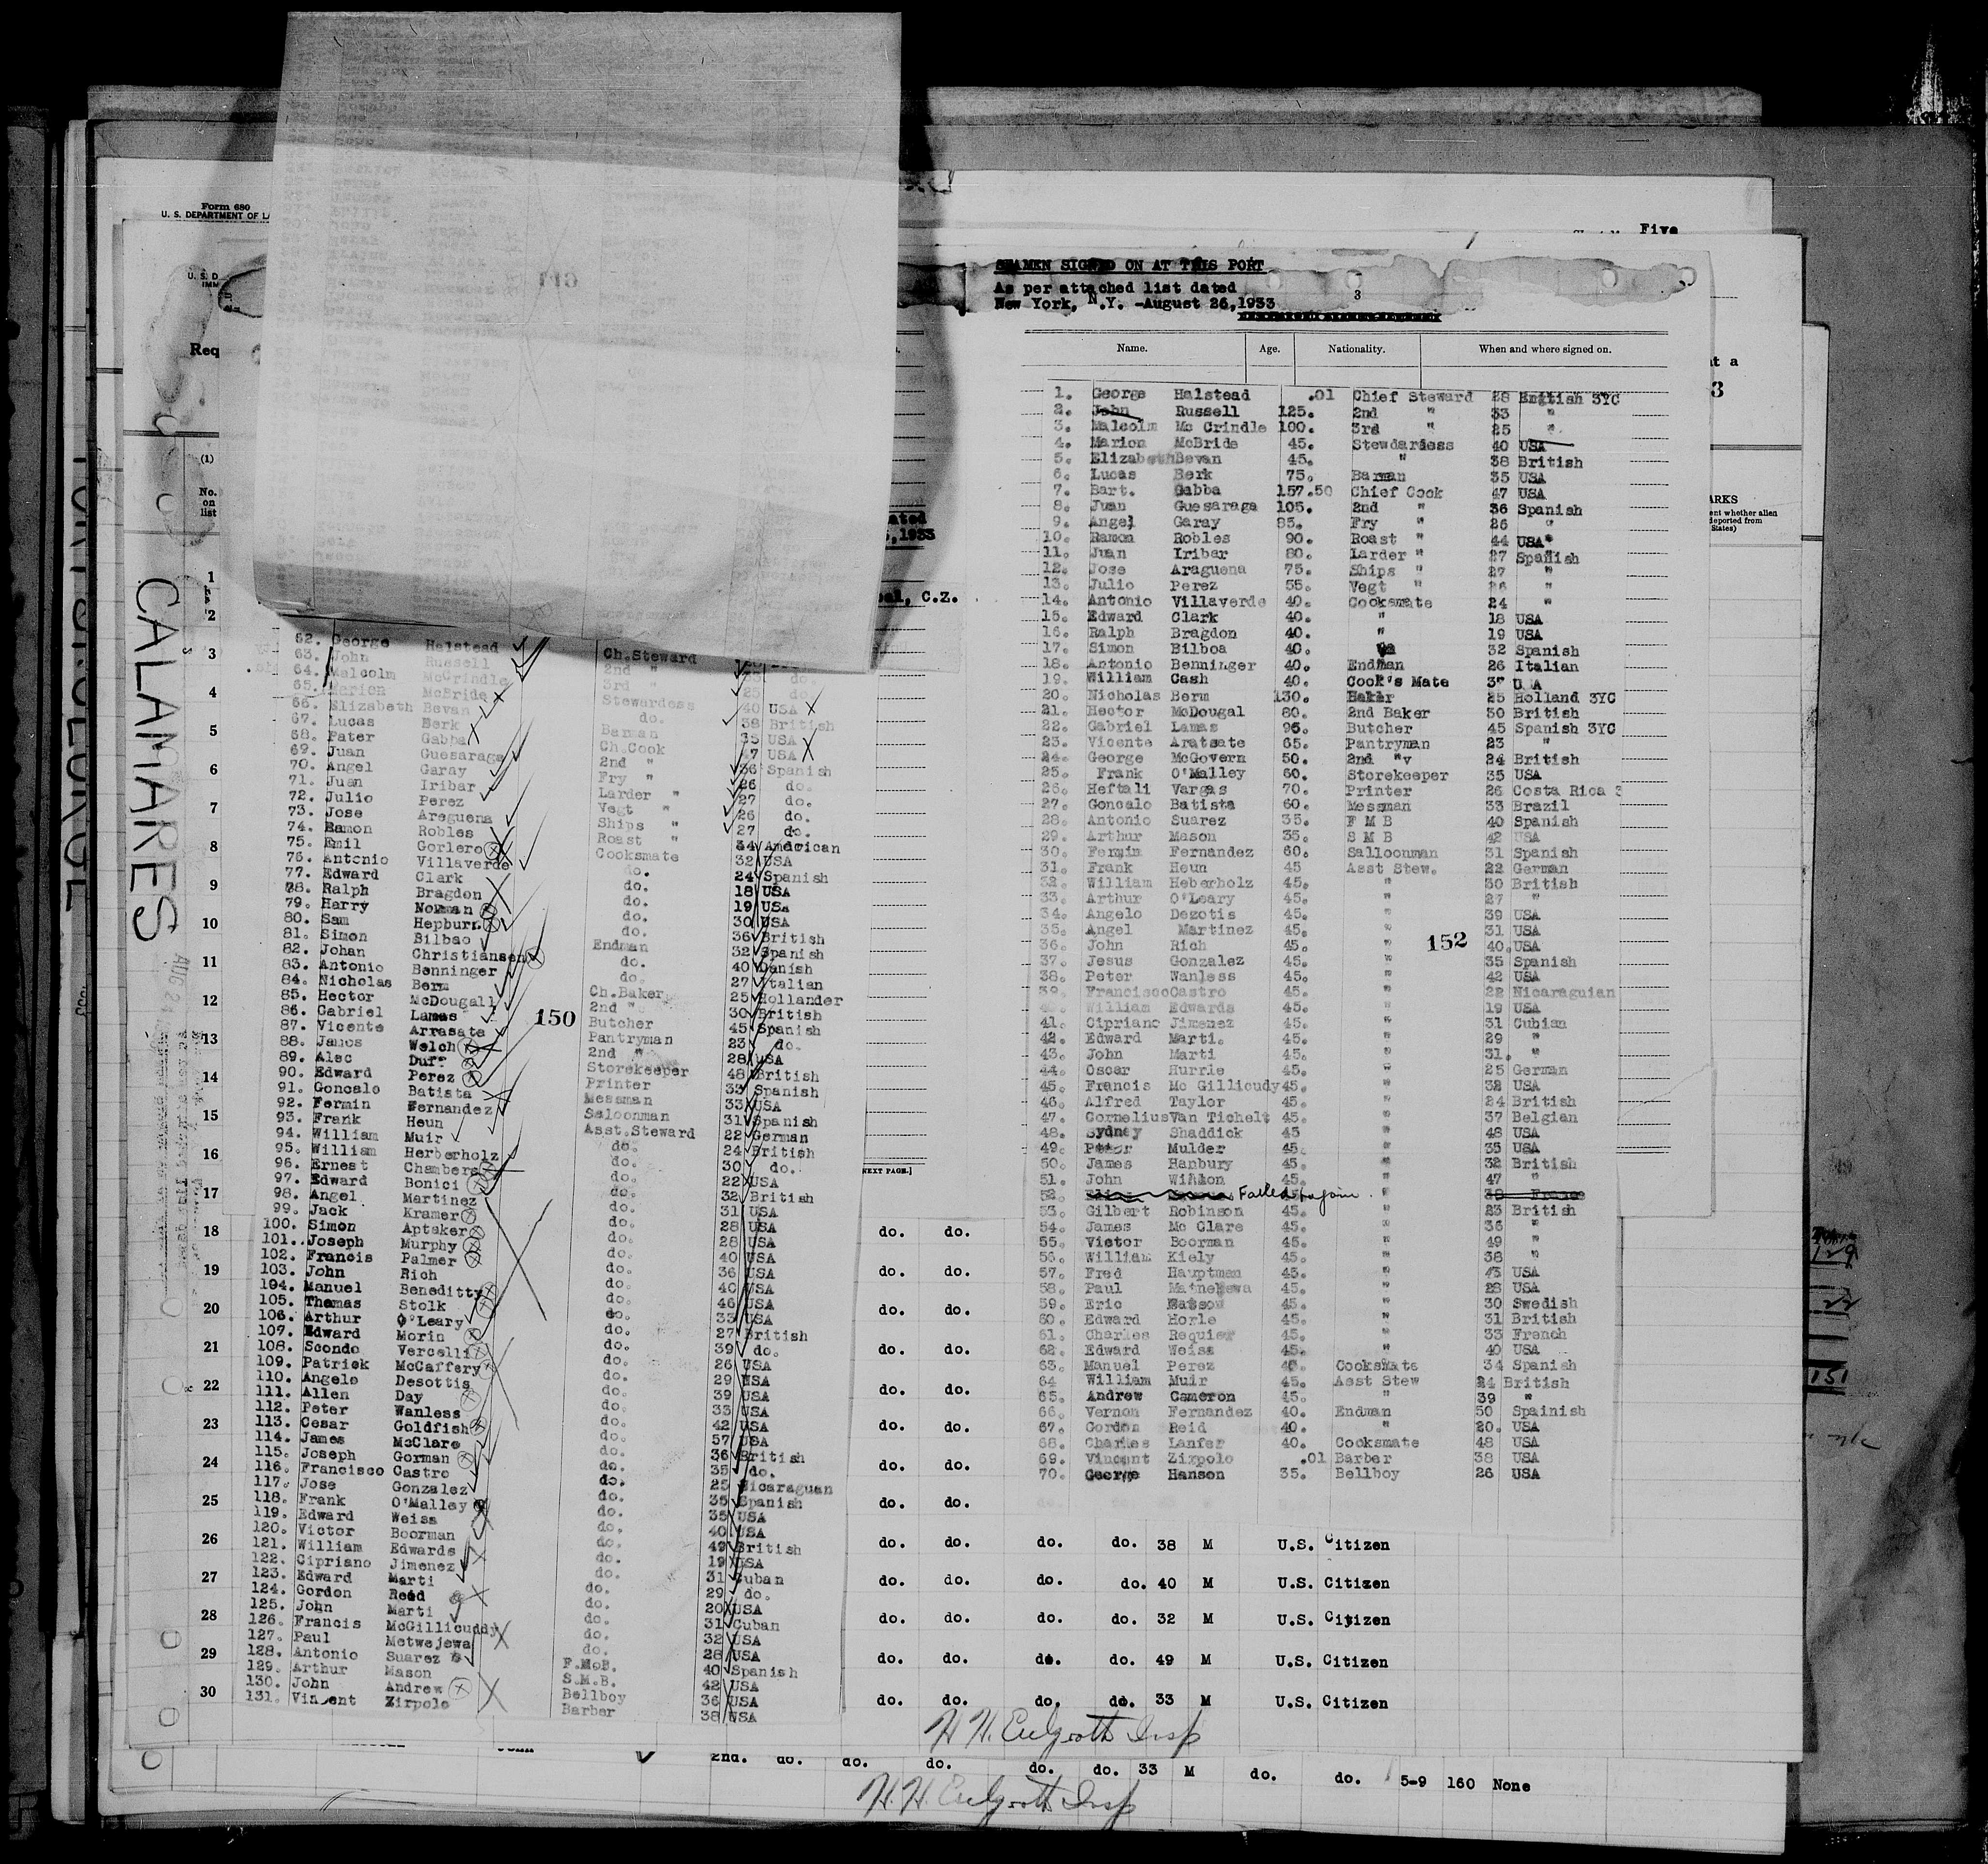 Form 680
U. S. DEPARTMENT OF
Five
SEAMEN SIGNED ON AT THIS PORT
As per attached list dated
New York, N.Y. -August 26,1933
3
Name. Age. Nationality. When and where signed on.
1. George Halstead .01 Chief Steward 28 British 3YC
2. John Russell 125. 2nd " 33 "
3. Malcolm Mc Crindle 100. 3rd " 25 "
4. Marion McBride 45. Stewdardess 40 USA
5. Elizabeth Bevan 45. " 38 British
6. Lucas Berk 75. Barman 35 USA
7. Bart. Gabba 157.50 Chief Cook 47 USA
8. Juan Guesaraga 105. 2nd " 36 Spanish
9. Angel Garay 85. Fry " 26 "
10. Ramon Robles 90. Roast " 44 USA"
11. Juan Iribar 80. Larder " 27 Spanish
12. Jose Araguena 75. Ships " 27 "
13. Julio Perez 55. Vegt " 26 "
14. Antonio Villaverde 40. Cooksmate 24 "
15. Edward Clark 40. " 18 USA
16. Ralph Bragdon 40. " 19 USA
17. Simon Bilboa 40. 32 Spanish
18. Antonio Benninger 40. Endman 26 Italian
19. William Cash 40. Cook's Mate
20. Nicholas Berm 130. Baker 25 Holland 3YC
21. Hector McDougal 80. 2nd Baker 30 British
22. Gabriel Lamas 95. Butcher 45 Spanish 3YC
23. Vicente Aratsate 65. Pantryman 23 "
24. George McGovern 50. 2nd "v 24 British
25. Frank O'Malley 60. Storekeeper 35 USA
26. Heftali Vargas 70. Printer 26 Costa Rica
27. Goncalo Batista 60. Messman 33 Brazil
28. Antonio Suarez 35. F M B 40 Spanish
29. Arthur Mason 35. S M B 42 USA
30. Fermin Fernandez 60. Salloonman 31 Spanish
31. Frank Heun 45 Asst Stew. 22 German
32. William Heberholz 45. " 30 British
33. Arthur O'Leary 45. " 27 "
34. Angelo Dezotis 45. " 39 USA
35. Angel Martinez 45. " 31 USA
36. John Rich 45. " 40. USA
152
37. Jesus Gonzalez 45. " 35 Spanish
38. Peter Wanless 45. " 42 USA
39. Francisco Castro 45. " 22 Nicaraguian
40. William Edwards 45. " 19 USA
41. Cipriano Jimenez 45. " 31 Cubian
42. Edward Marti. 45. " 29 "
43. John Marti 45. " 31. "
44. Oscar Hurrle 45. " 25 German
45. Francis Mc Gillicudy 45. " 32 USA
46. Alfred Taylor 45. " 24 British
47. Cornelius Van Tichelt 45. " 37 Belgian
48. Sydney Shaddick 45 " 48 USA
49. Peter Mulder 45. " 35 USA
50. James Hanbury 45. " 32 British
51. John Wilson 45. " 47 "
52. Failed to join France
53. Gilbert Robinson 45. " 23 British
54. James Mc Clare 45. " 36 "
55. Victor Boorman 45. " 49 "
56. William Kiely 45. " 38 "
57. Fred Hauptman 45. " 43 USA
58. Paul 45. " 28 USA
59. Eric Matson 45. " 30 Swedish
60. Edward Horle 45. " 31 British
61. Charles Requier 45. " 33 French
62. Edward Weiss 45. " 40 USA
63. Manuel Perez Cooksmate 34 Spanish
64 William Muir 45. Asst Stew 24 British
65. Andrew Cameron 45. " 39 "
66. Vernon Fernandez 40. Endman 50 Spainish
67. Gordon Reid 40. " 20. USA
68. Charles Lanfer 40. Cooksmate 48 USA
69. Vincent Zirpolo .01 Barber 38 USA
70. George Hanson 35. Bellboy 26 USA
CALAMARES
Req
(1)
No.
on
list
1
2
3
4
5
6
7
8
9
10
11
12
13
14
15
16
17
18
19
20
21
22
23
24
25
26
27
28
29
30
,1933
C.Z.
62. George Halstead Ch.Steward
63. John Russell 2nd " do.
64. Malcolm McCrindle 3rd " 25 do.
65. Marion McBride Stewardess 40 USA
66. Elizabeth Bevan do. 38 British
67. Lucas Berk Barman 35 USA
68. Pater Gabba Ch.Cook 47 USA
69. Juan Guesaraga 2nd " 36 Spanish
70. Angel Garay Fry " 26 do.
71. Juan Iribar Larder " 27 do.
72. Julio Perez Vegt " 26 do.
73. Jose Areguena Ships " 27 do.
74. Ramon Robles Roast " 34 American
75. Emil Gorlero Cooksmate 32 USA
76. Antonio Villaverde do. 24 Spanish
77. Edward Clark do. 18 USA
78. Ralph Bragdon do. 19 USA
79. Harry Norman do. 30 USA
80. Sam Hepburn do. 36 British
81. Simon Bilbao Endman 32 Spanish
82. Johan Christiansen do. 40 Danish
83. Antonio Benninger do. 27 Italian
84. Nicholas Berm Ch.Baker 25 Hollander
85. Hector McDougall 2nd " 30 British
86. Gabriel Lamas 150 Butcher 45 Spanish
87. Vicente Arrasata Pantryman 23 do.
88. James Welch 2nd " 28 USA
89. Alec Duff Storekeeper 48 British
90. Edward Perez Printer 33 Spanish
91. Goncalo Batista Messman 33 USA
92. Fermin Fernandez Saloonman 31 Spanish
93. Frank Heun Asst.Steward 22 German
94. William Muir do. 24 British
95. William Herberholz do. 30 do.
96. Ernest Chambers do. 22 USA
97. Edward Bonici do. 32 British
98. Angel Martinez do. 31 USA
99. Jack Kramer do. 28 USA
100. Simon Aptaker do. 28 USA
101.. Joseph Murphy do. 40 USA
102. Francis Palmer do. 36 USA
103. John Rich do. 40 USA
104. Manuel Beneditty do. 46 USA
105. Thomas Stolk do. 33 USA
106. Arthur O'Leary do. 27 British
107. Edward Morin do. 39 do.
108. Secondo Vercelli do. 26 USA
109. Patrick McCaffery do. 29 USA
110. Angelo Desottis do. 39 USA
111. Allen Day do. 33 USA
112. Peter Wanless do. 42 USA
113. Cesar Goldfish do. 57 USA
114. James McClare do. 36 British
115. Joseph Gorman do. 35 do.
116. Francisco Castro do. 25 Nicaraguan
117. Jose Gonzalez do. 35 Spanish
118. Frank O'Malley do. 35 USA
119. Edward Weiss do. 40 USA
120. Victor Boorman do. 49 British
121. William Edwards do. 19 USA
122. Cipriano Jimenez do. 31 Cuban
123. Edward Marti do. 29 do.
124. Gordon Reid do. 20 USA
125. John Marti do. 31 Cuban
126. Francis McGillicuddy do. 32 USA
127. Paul Metwejewa do. 28 USA
128. Antonio Suarez F.M.B. 40 Spanish
129. Arthur Mason S.M.B. 42 USA
130. John Andrew Bellboy 36 USA
131. Vincent Zirpolo Barber 38 USA
NEXT PAGE.]
do. do.
do. do.
do. do.
do. do.
do. do.
do. do.
do. do.
do. do.
do. do. do. do. 38 M U.S. Citizen
do. do. do. do. 40 M U.S. Citizen
do. do. do. do. 32 M U.S. Citizen
do. do. do. do. 49 M U.S. Citizen
do. do. do. do. 33 M U.S. Citizen
John 2nd. do. do. do. do. do. 33 M do. do. 5-9 160 None
129
151